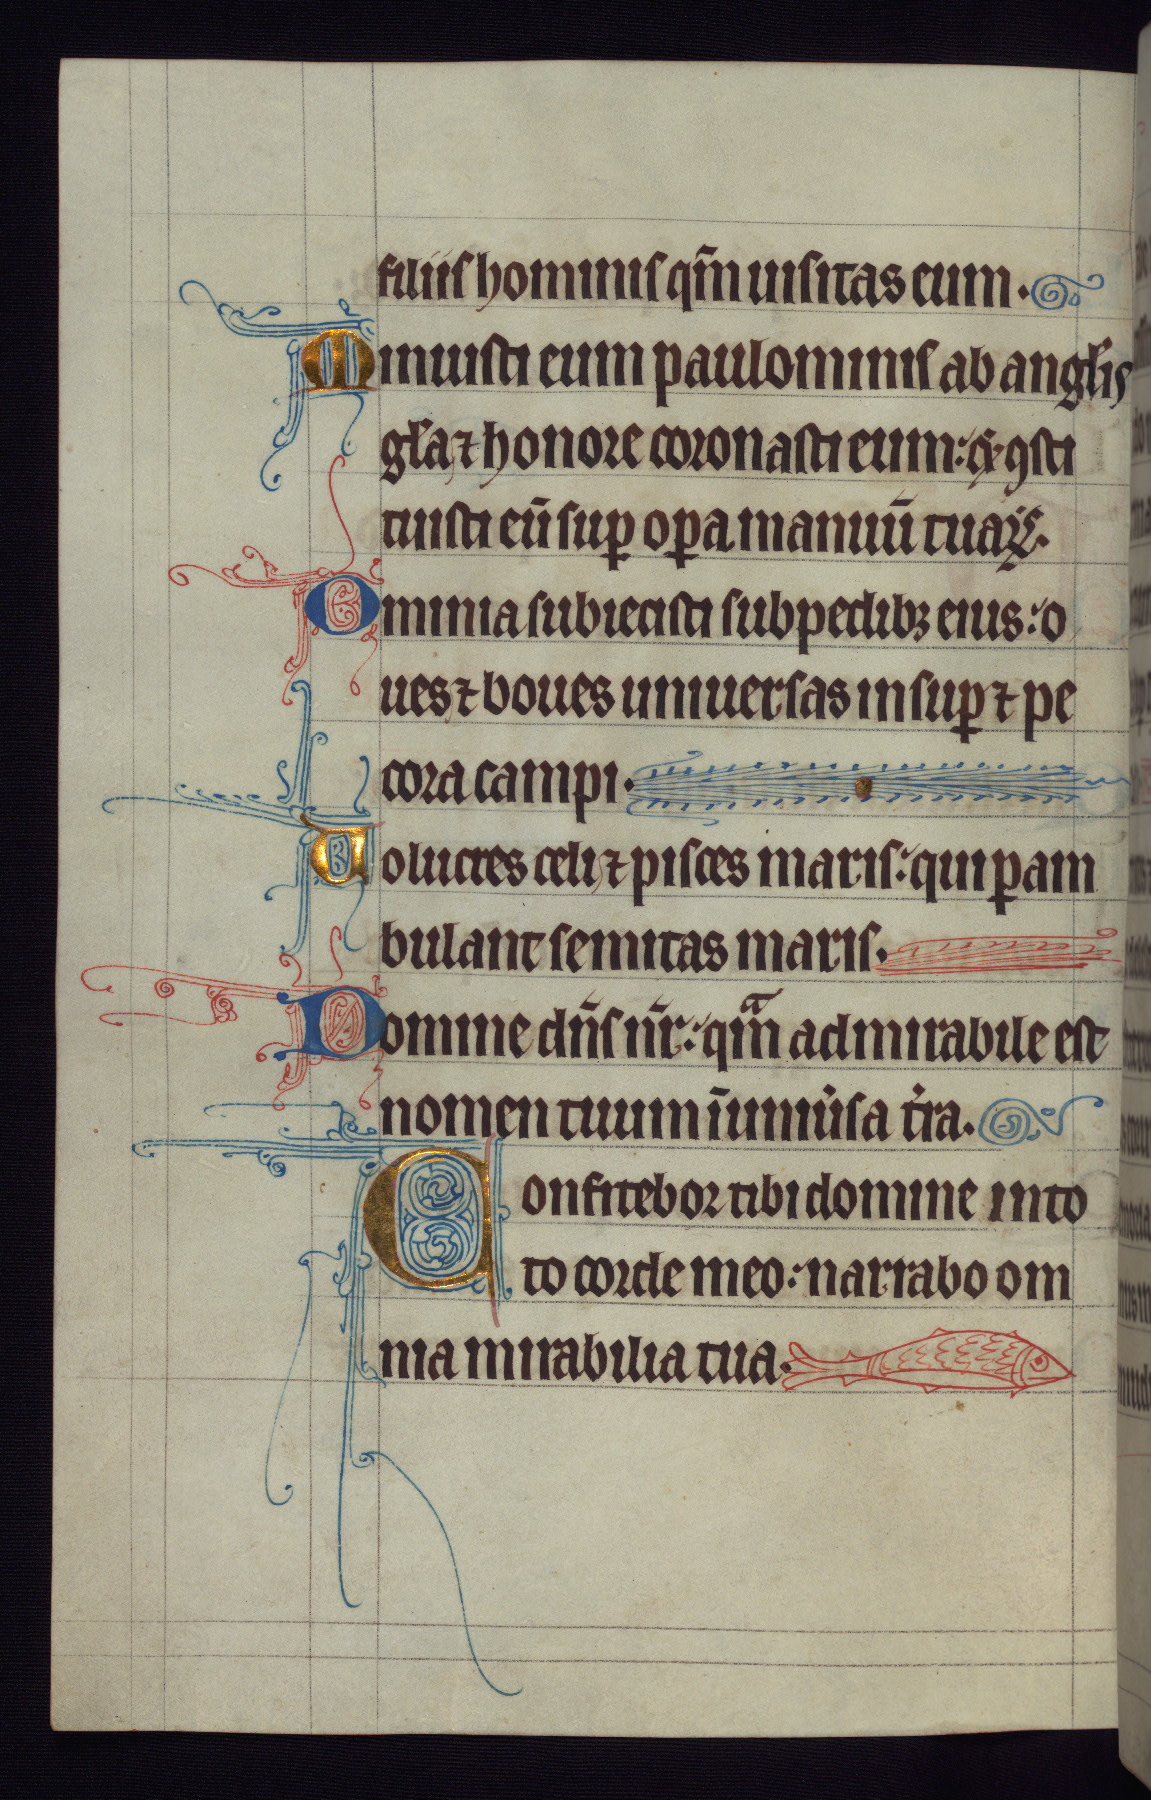 filiis hominis qm̄ uisitas eum.
Minuisti eum paulominus ab angłis
gła ⁊ honore coronasti eum: ꝯsti
tuisti eū sup oꝑa manuū tuaꝝ.
Omnia subiecisti sub pedibꝫ eius: o
ues ⁊ boues uniuersas insuꝑ ⁊ pe
cora campi.
Uolucres celi ⁊ pisces maris: qui ꝑam
bulant semitas maris.
Domine dn̄s nr̄: qm̄ admirabile est
nomen tuum ī uniuersa tra.
Confitebor tibi domine in to
to corde meo: narrabo om
nia mirabilia tua.